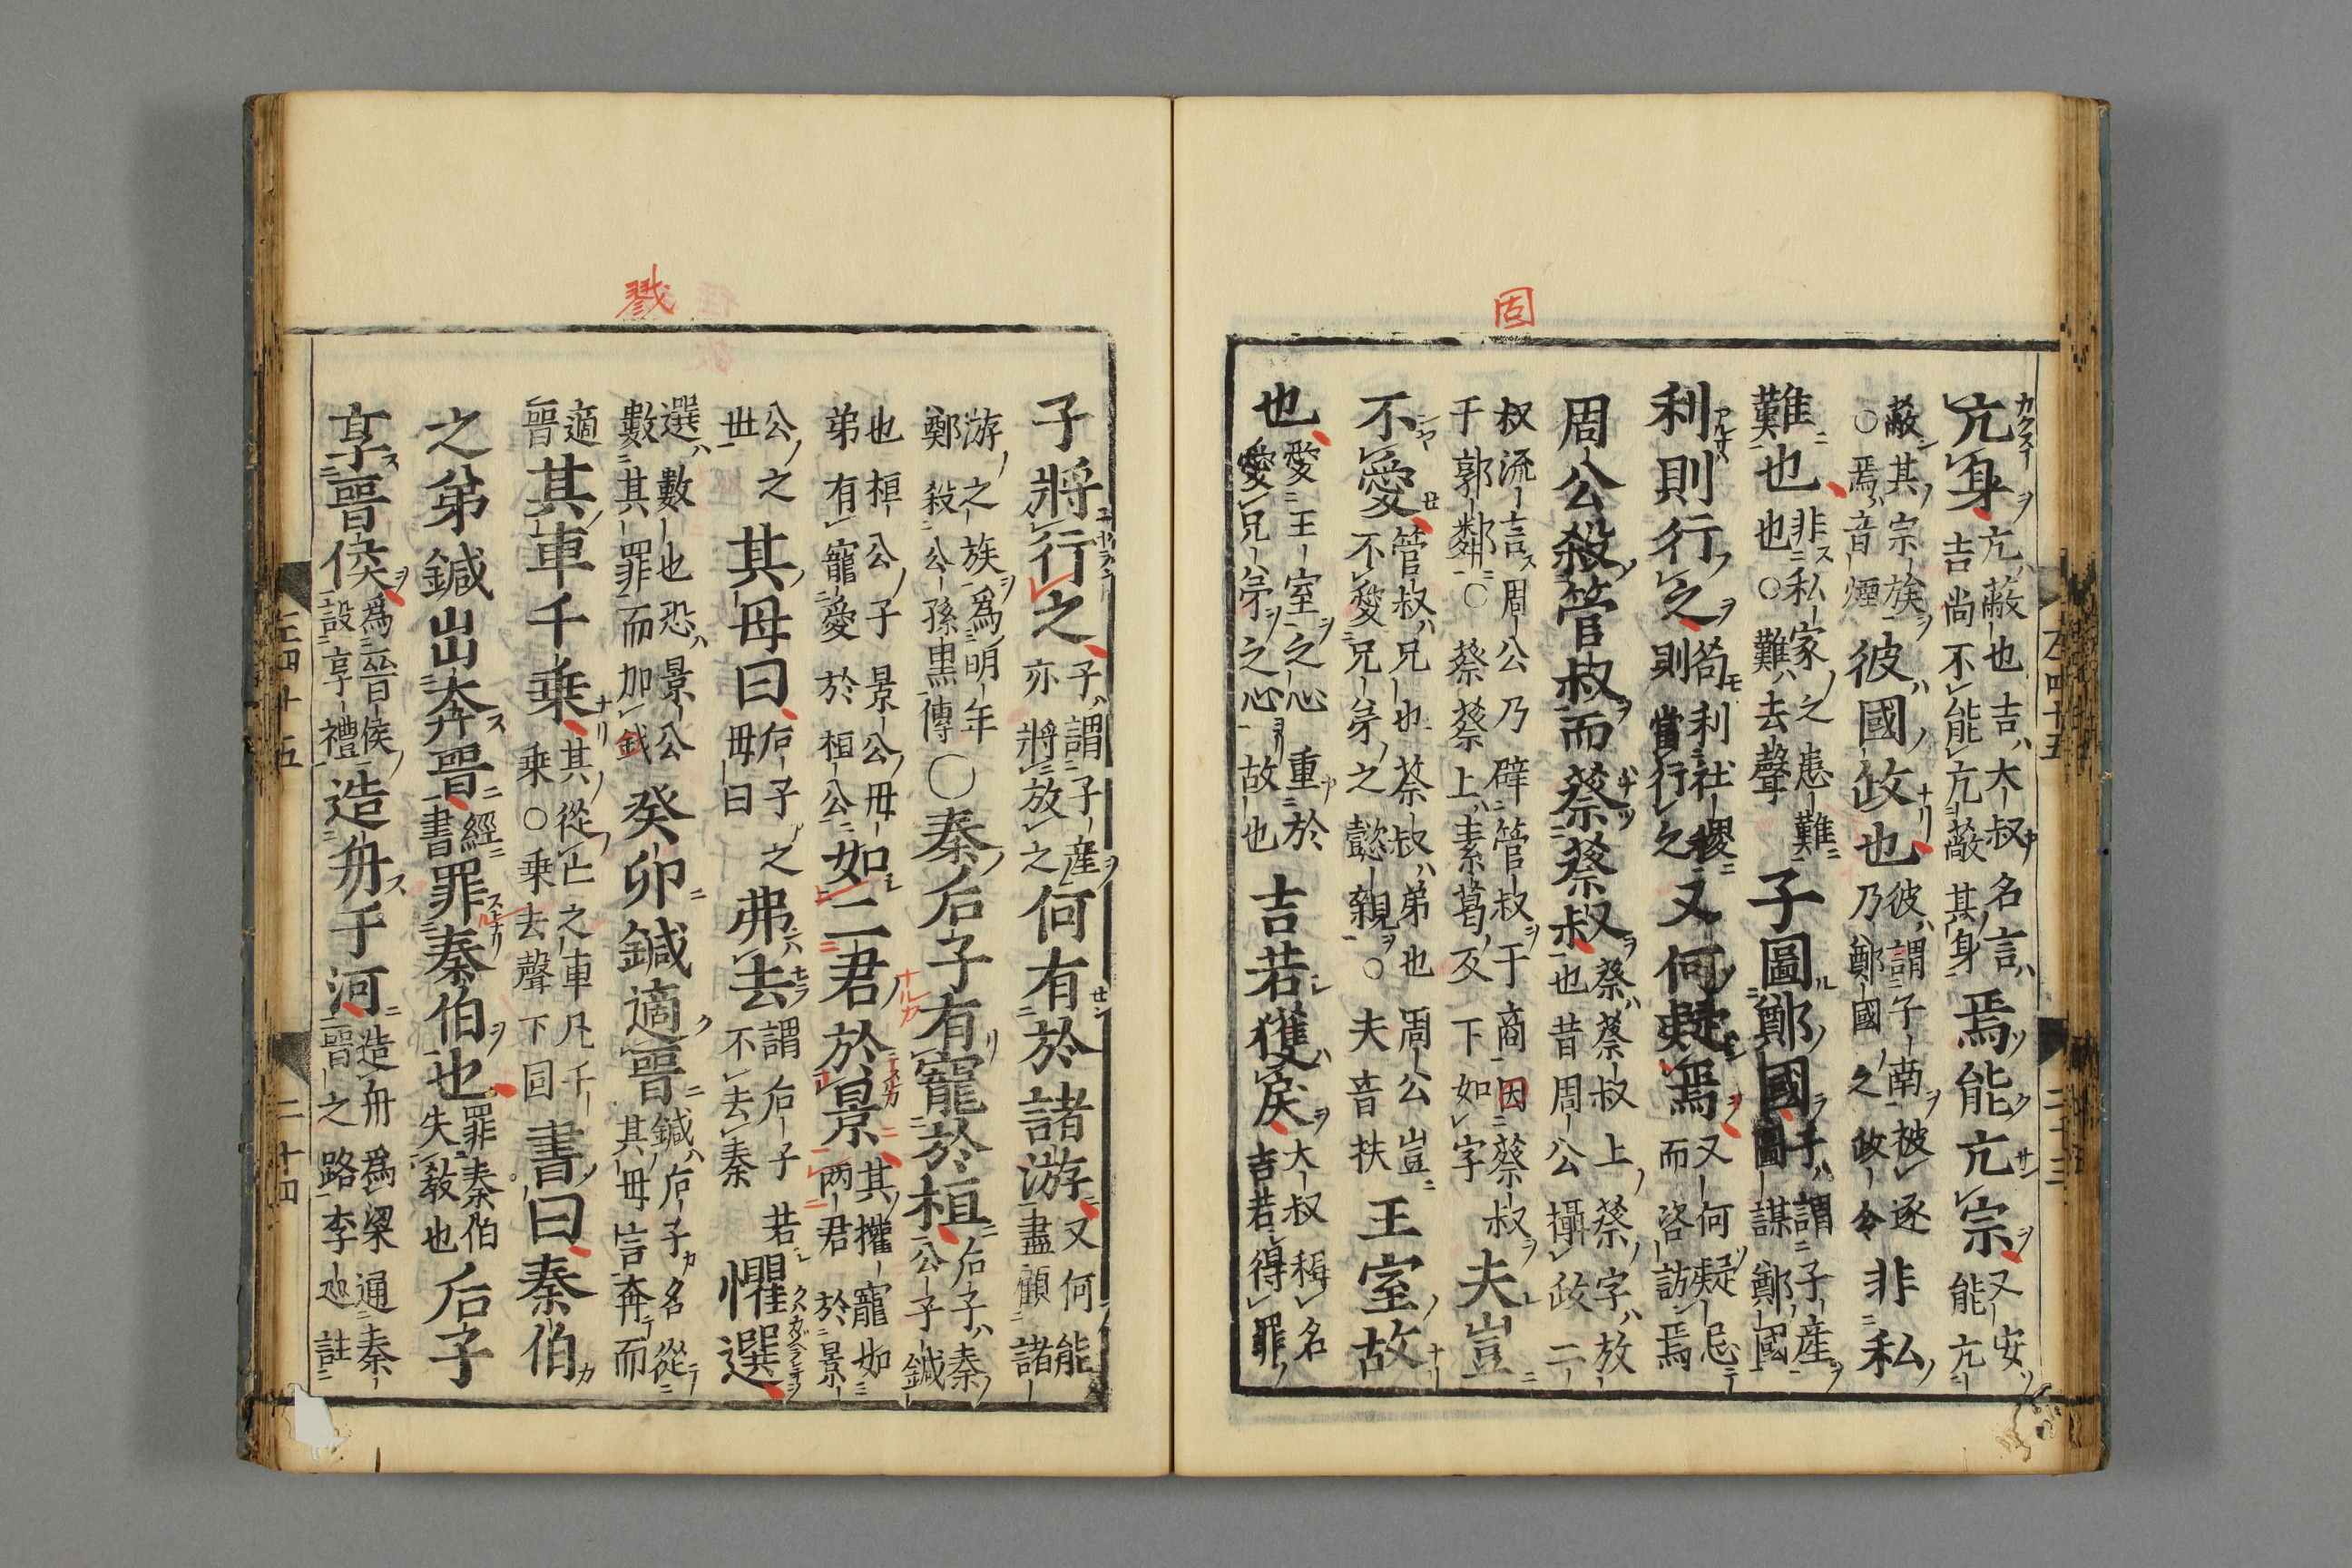 固
左四十五 二十三
亢身亢蔽也吉大叔名言吉尚不能亢蔽其身焉能亢宗又安能亢
蔽其宗族○焉音煙彼國政也彼謂子南被逐乃鄭國之政令非私
難也非私家之患難也○難去聲子圖鄭國子謂子產圖謀鄭國
利則行之苟利社稷則當行之又何疑焉又何疑忌而咨訪焉
周公殺管叔而蔡蔡叔蔡蔡叔上蔡字放也昔周公攝政二
叔流言周公乃辟管叔于商因蔡叔于郭鄰○蔡蔡上素葛反下如字夫豈
不愛管叔兄也蔡叔弟也周公豈不愛兄弟之懿親○夫音扶王室故
也愛王室之心重於愛兄弟之心故也吉若獲戾大叔稱名吉若得罪
戮
子將行之子謂子產亦將放之何有於諸游又何能盡顧諸
游之族爲明年鄭殺公孫黑傳○秦后子有寵於桓后子秦公子鍼
也桓公子景公毋弟有寵愛於桓公如二君於景其權寵如兩君於景
公之世其母曰后子之毋曰弗去謂后子若不去秦懼選
選數也恐景公數其罪而加鉞癸卯鍼適晉鍼后子名從其毋言奔而
適晉其車千乘其從亡之車凡千乘○乘去聲下同書曰秦伯
之弟鍼出奔晉經書罪秦伯也罪秦伯失教也后子
享晉侯爲晉侯設享禮造舟于河造舟爲梁通秦晉之路李廵註
左四十五 二十四